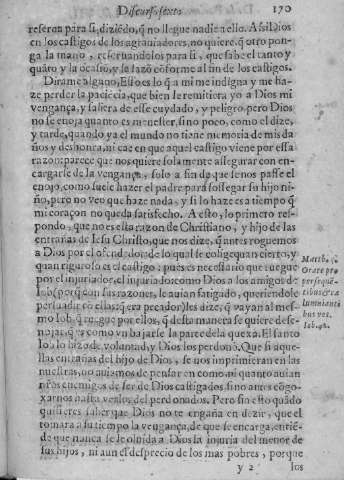 Discurso sexto 170
reserua para si, diziẽdo, q̃ no llegue nadie a ello. Assi Dios
en los castigos de los agrauiadores, no quiere, q̃ otro pon-
ga la mano, reseruandolos para si, que sabe el tanto y
quãto, y la ocasiõ, y sazõ cõforme al fin de los castigos.
Dirame alguno, Esso es lo q̃ a mi me indigna y me ha-
ze perder la paciẽcia, que bien se remitiera yo a Dios mi
vengança, y saliera de esse cuydado, y peligro, pero Dios
no se enoja quanto es menester, sino poco, como el dize,
y tarde, quando ya el mundo no tiene memoria de mis da
ños y deshonra, ni cae en que aquel castigo viene por essa
razon: parece que nos quiere solamente assegurar con en-
cargarse de la vengança, solo a fin de que se nos passe el
enojo, como suele hazer el padre para sossegar su hijo ni-
ño, pero no veo que haze nada, y si lo haze es a tiempo q̃
mi coraçon no queda satisfecho. A esto, lo primero res-
pondo, que no es essa razon de Christiano, y hijo de las
entrañas de Iesu Christo, que nos dize, q̃ antes roguemos
a Dios por el ofendedor, de lo qual se colige quan cierto, y
quan riguroso es el castigo: pues es necessario que ruegue
por el injuriador, el injuriado: como Dios a los amigos de
Iob (porq̃ con sus razones, le auian fatigado, queriendole
q̃ era pecador) les dize, q̃ vayan al mes-
mo Iob, q̃ ruegue por ellos, q̃ desta manera se quiere dese-
nojar, q̃ es como vn bajarse la parte de la quexa. El santo
Iob lo hizo de voluntad, y Dios los perdonò. Que si aque-
llas entrañas del hijo de Dios, se nos imprimieran en las
nuestras, no auiamos de pensar en como, ni quanto auian
nros enemigos de ser de Dios castigados, sino antes cõgo-
xarnos hasta verlos del perdonados. Pero sin esto quãdo
quisieres saber que Dios no te engaña en dezir, que el
tomarà a su tiempo la vengança, de que se encarga, entiẽ-
de que nunca se le oluida a Dios la injuria del menor de
sus hijos, ni aun el desprecio de los mas pobres, porque
y 2 los
Matth. 5.
Orate pro
persequẽ-
tibus et ca
lumniantibus
bus vos.
Iob. 42.